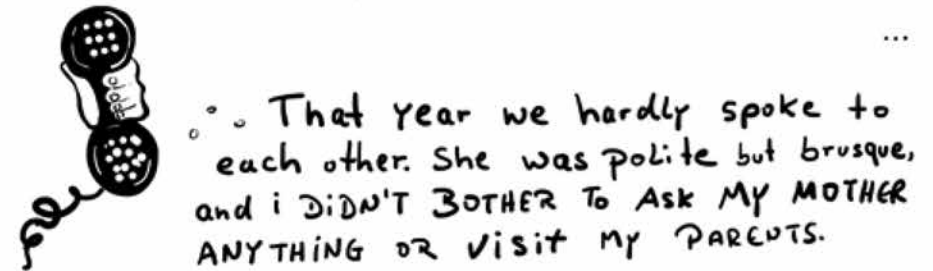 ...
That year we hardly spoke to
each other. She was polite but brusque,
and i DiDN'T BOTHER To ASK MY MOTHER
ANYTHiNG OR Visit My PARENTS.